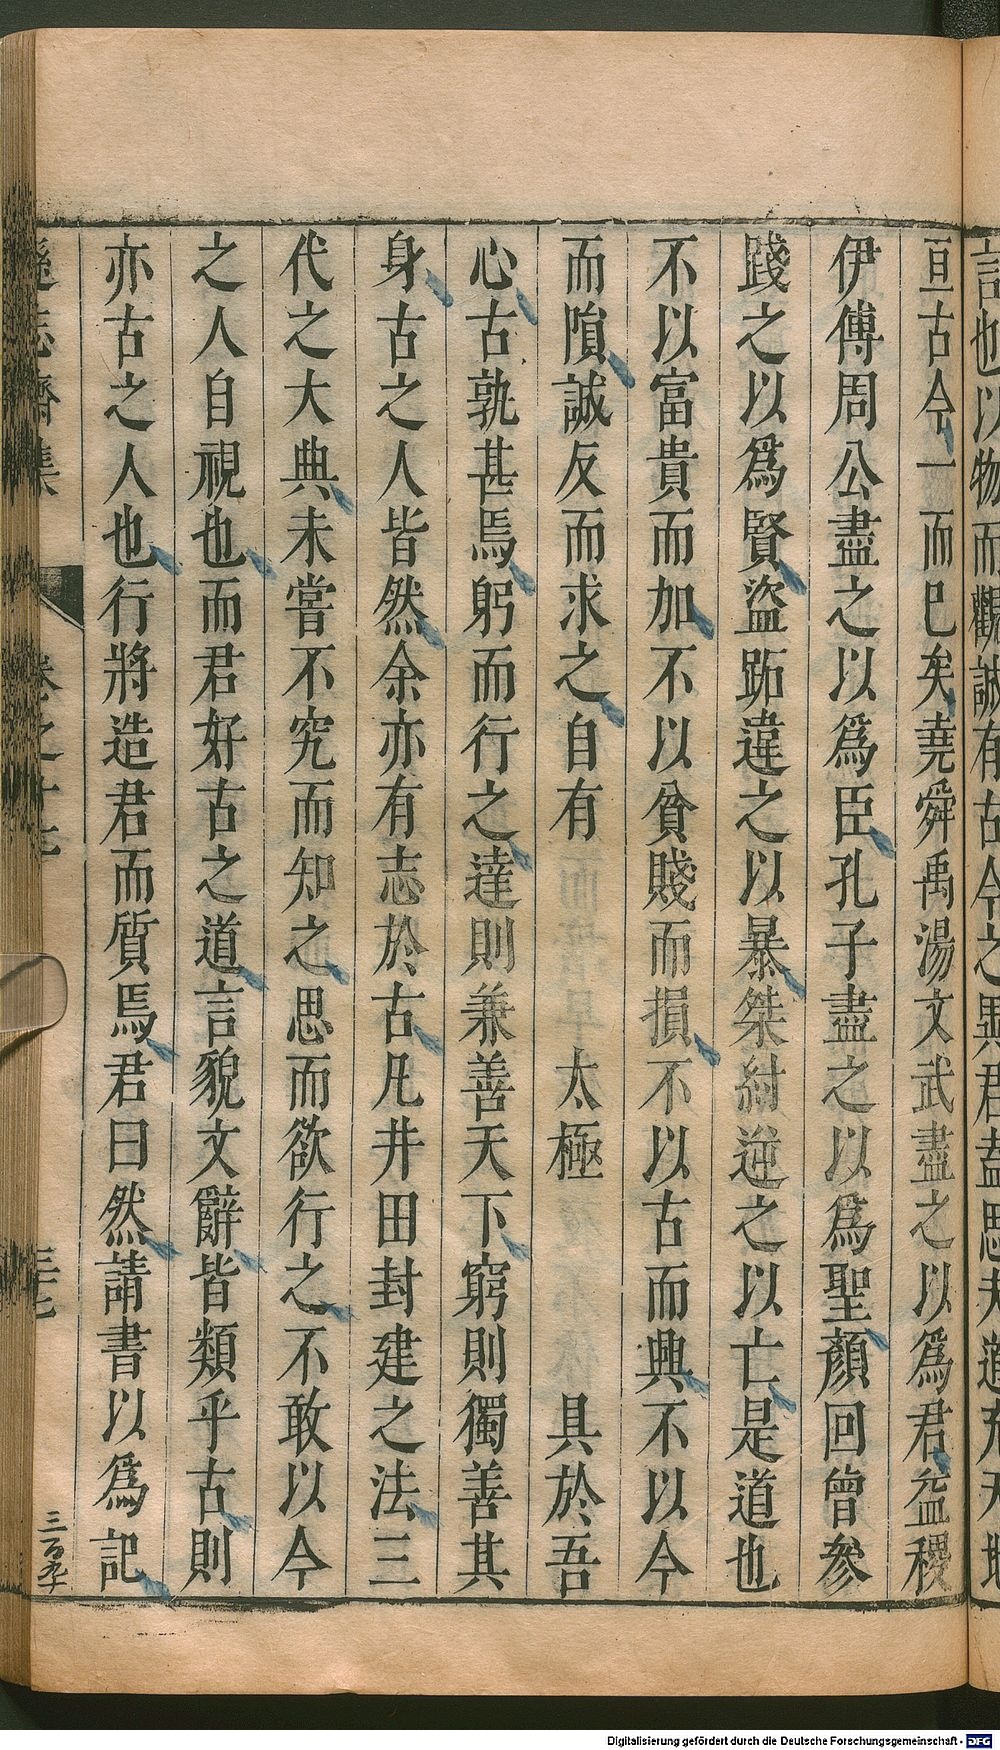 言也以物而觀誠有古今之異君蓋思夫道充天地
亘古今一而已矣堯舜禹湯文武盡之以爲君益稷
伊傅周公盡之以爲臣孔子盡之以爲聖顏回曾參
踐之以爲賢盜跖違之以暴桀紂逆之以亡是道也
不以富貴而加不以貧賤而損不以古而興不以今
而隕誠反而求之自有 太極 具於吾
心古孰甚焉躬而行之達則兼善天下窮則獨善其
身古之人皆然余亦有志於古凡井田封建之法三
代之大典未嘗不究而知之思而欲行之不敢以今
之人自視也而君好古之道言貌文辭皆類乎古則
亦古之人也行將造君而質焉君曰然請書以爲記
遜志齋集 卷之十七 三七
三百四十
Digitalisierung gefördert durch die Deutsche Forschungsgemeinschaft - DFG